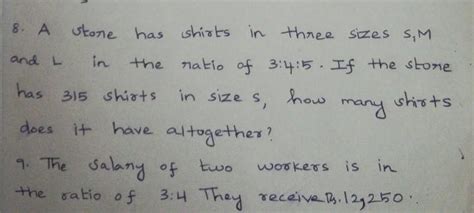 8. A store has shirts in three sizes S,M
and L in the ratio of 3:4:5. If the store
has 315 shirts in size s, how many shirts
does it have altogether?
9. The Salary of two workers is in
the ratio of 3:4 They receive Rs.12,250.